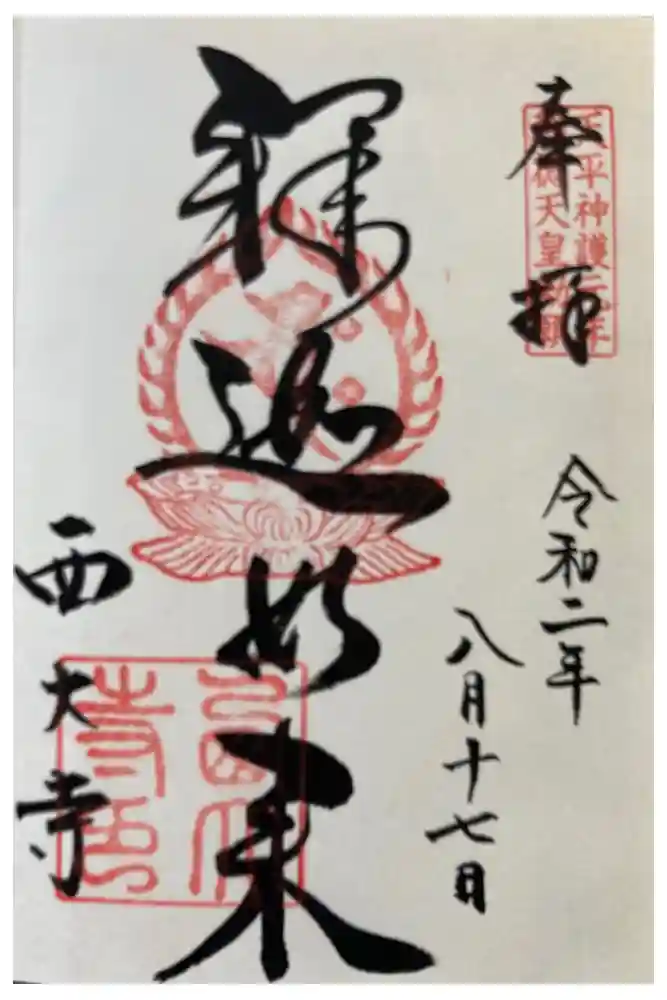 天平神護元年
称徳天皇勅願
奉拝
令和二年
八月十七日
釋迦如来
西大寺
西大寺印